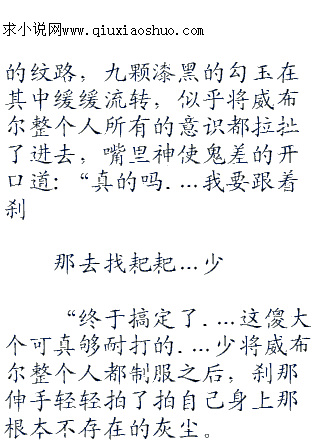 求小说网www.qiuxiaoshuo.com
的纹路，九颗漆黑的勾玉在
其中缓缓流转，似乎将威布
尔整个人所有的意识都拉扯
了进去，嘴里神使鬼差的开
口道：“真的吗....我要跟着
刹
那去找耙耙...少
“终于搞定了....这傻大
个可真够耐打的....少将威布
尔整个人都制服之后，刹那
伸手轻轻拍了拍自己身上那
根本不存在的灰尘。